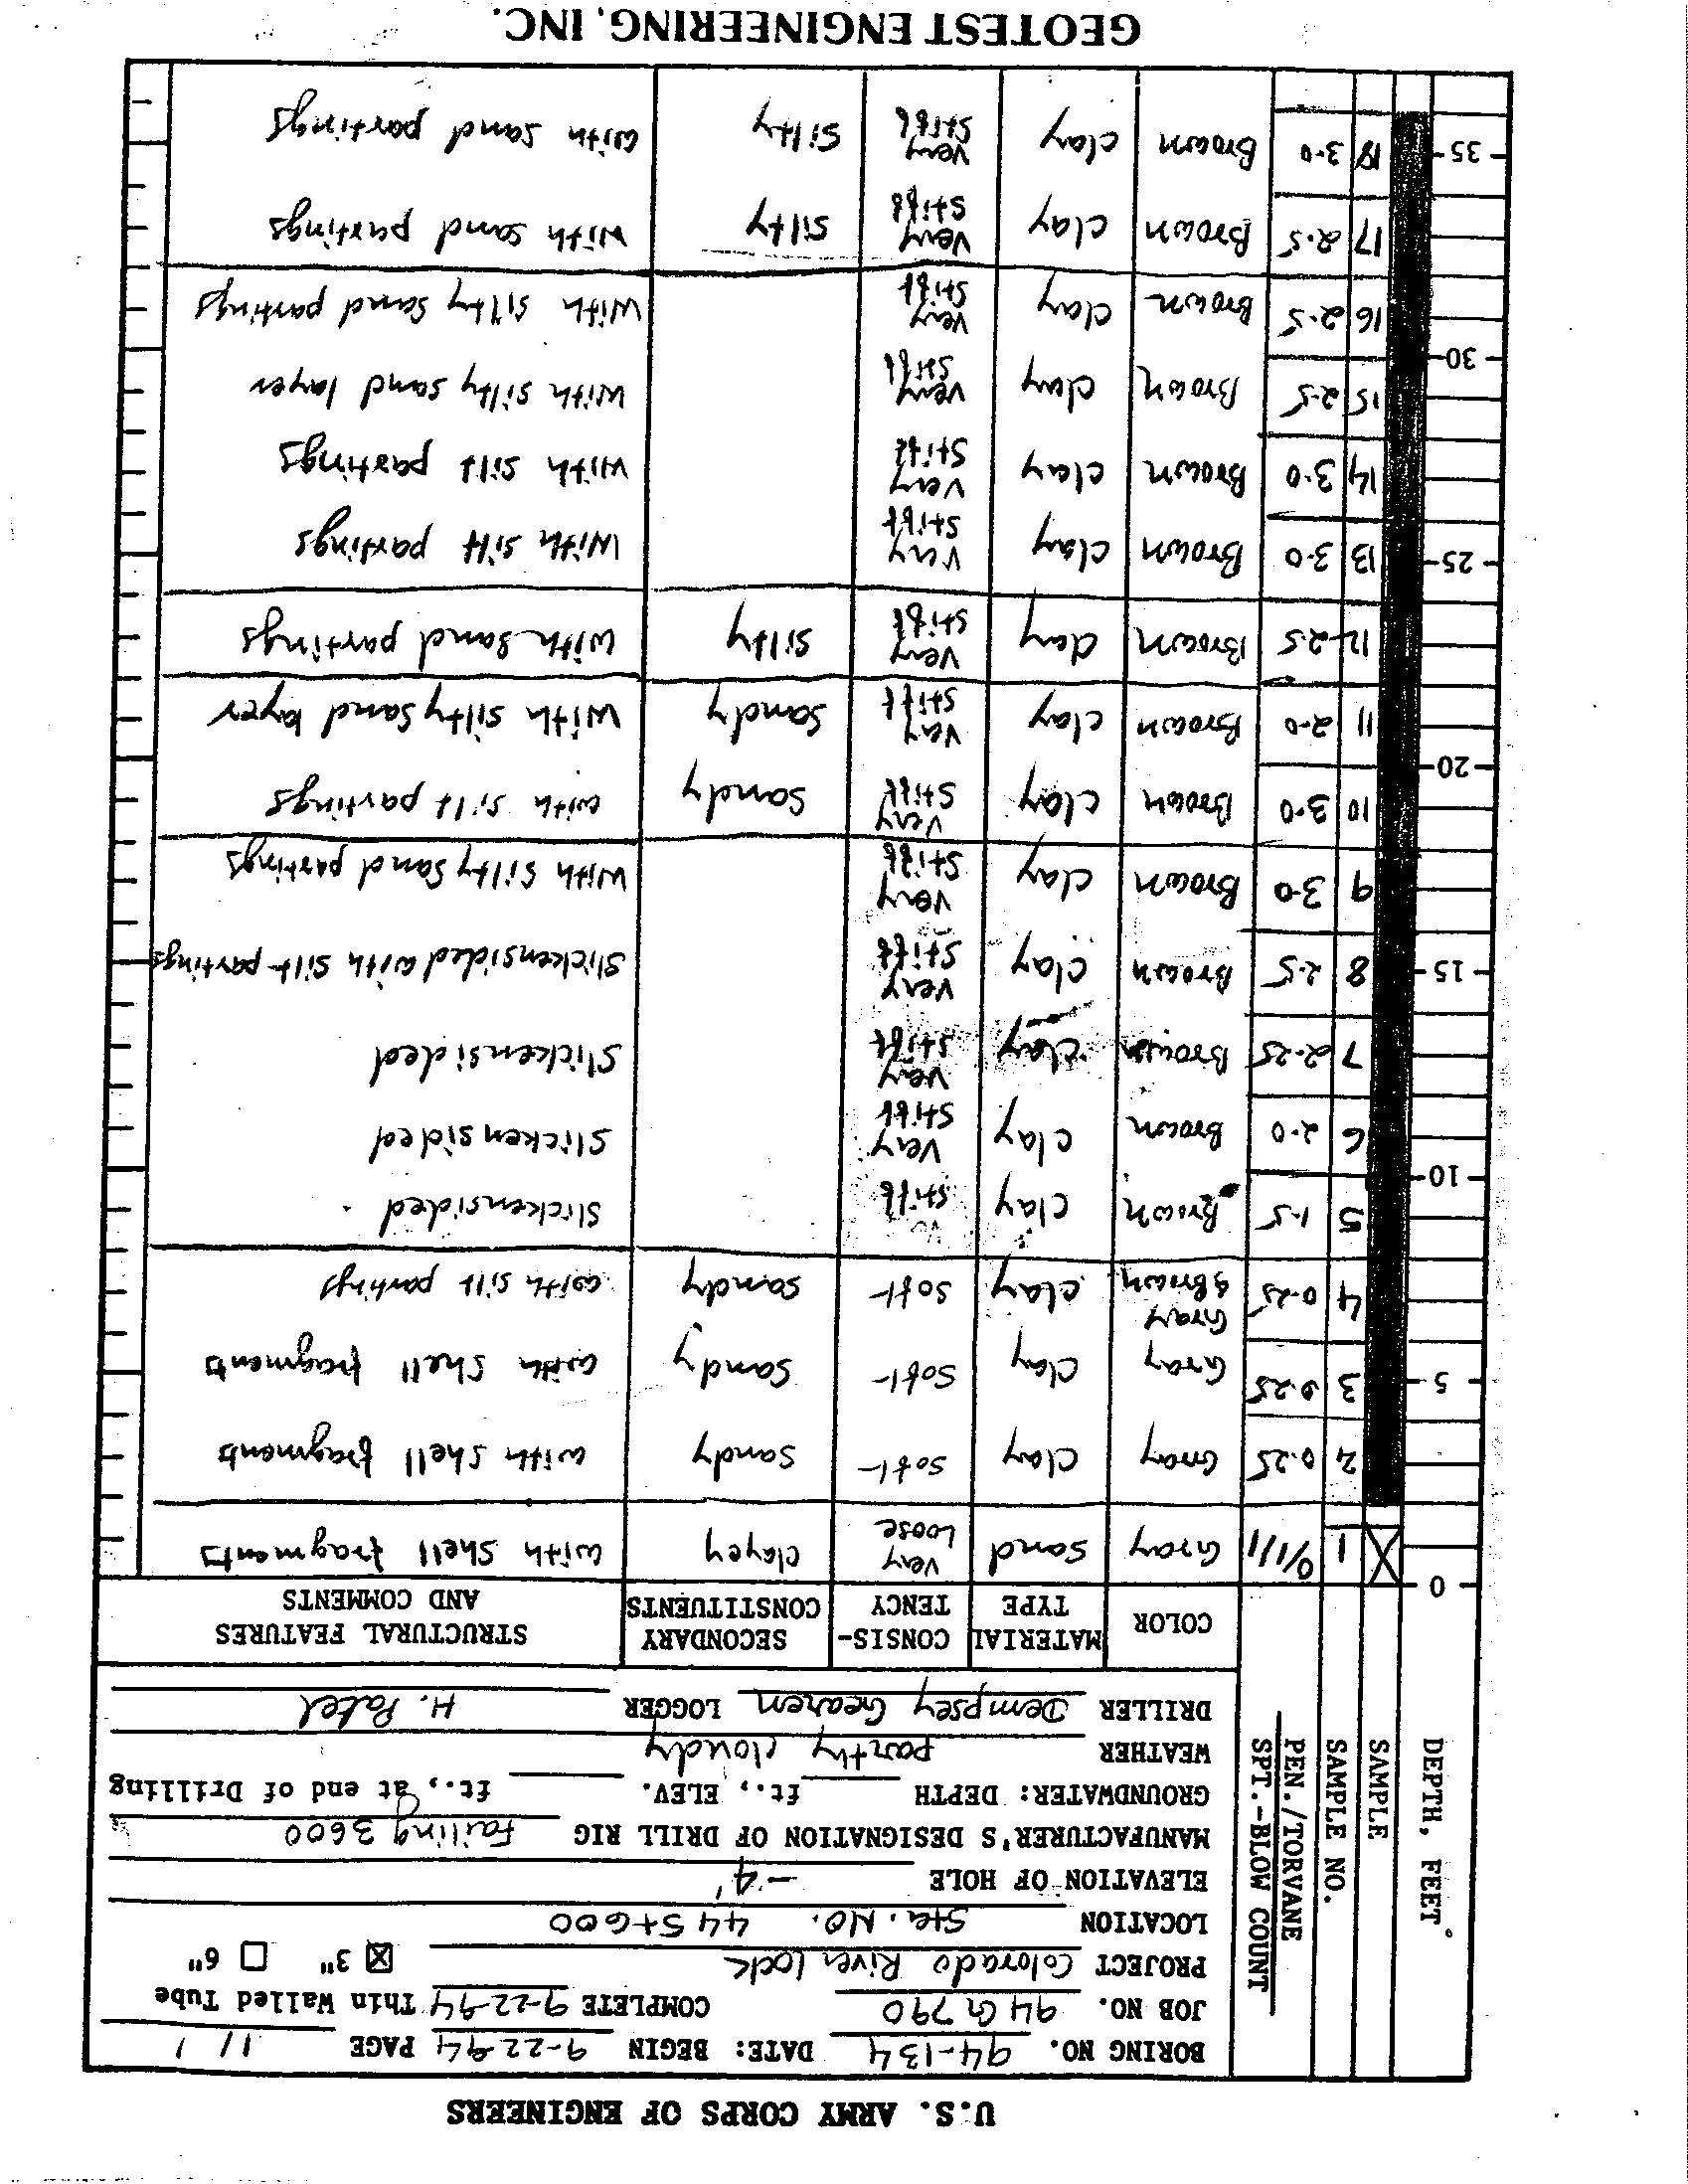 U.S. ARMY CORPS OF ENGINEERS
BORING NO. 94-134 DATE: BEGIN 9-22-94 PAGE 1/1
JOB NO. 94G790 COMPLETE 9-22-94 Thin Walled Tube
PROJECT Colorado River Lock ☒ 3" ☐ 6"
LOCATION Sta. NO. 445+600
ELEVATION OF HOLE -4'
MANUFACTURER'S DESIGNATION OF DRILL RIG Failing 3600
GROUNDWATER: DEPTH ft., ELEV. ft., at end of Drilling
WEATHER partly cloudy
DRILLER Dempsey Gearen LOGGER H. Patel
DEPTH, FEET
SAMPLE
SAMPLE NO.
PEN./TORVANE
SPT.-BLOW COUNT
COLOR
MATERIAL TYPE
CONSIS-TENCY
SECONDARY CONSTITUENTS
STRUCTURAL FEATURES AND COMMENTS
0 1 0/1/1 Gray Sand Very Loose clayey with shell fragments
2 0.25 Gray Clay Soft Sandy with shell fragments
5 3 0.25 Gray Clay Soft Sandy with shell fragments
4 0.25 Gray & Brown Clay Soft Sandy with silt partings
5 1.5 Brown Clay Stiff Slickensided
10 6 2.0 Brown Clay Very Stiff Slickensided
7 2.25 Brown Clay Very Stiff Slickensided
15 8 2.5 Brown Clay Very Stiff Slickensided with silt partings
9 3.0 Brown Clay Very Stiff with silty sand partings
10 3.0 Brown Clay Very Stiff Sandy with silt partings
20 11 2.0 Brown Clay Very Stiff Sandy with silty sand layer
12 2.5 Brown Clay Very Stiff Silty with sand partings
25 13 3.0 Brown Clay Very Stiff With silt partings
14 3.0 Brown Clay Very Stiff with silt partings
15 2.5 Brown Clay Very Stiff with silty sand layer
30 16 2.5 Brown Clay Very Stiff with silty sand partings
17 2.5 Brown Clay Very Stiff Silty with sand partings
35 18 3.0 Brown Clay Very Stiff Silty with sand partings
GEOTEST ENGINEERING, INC.